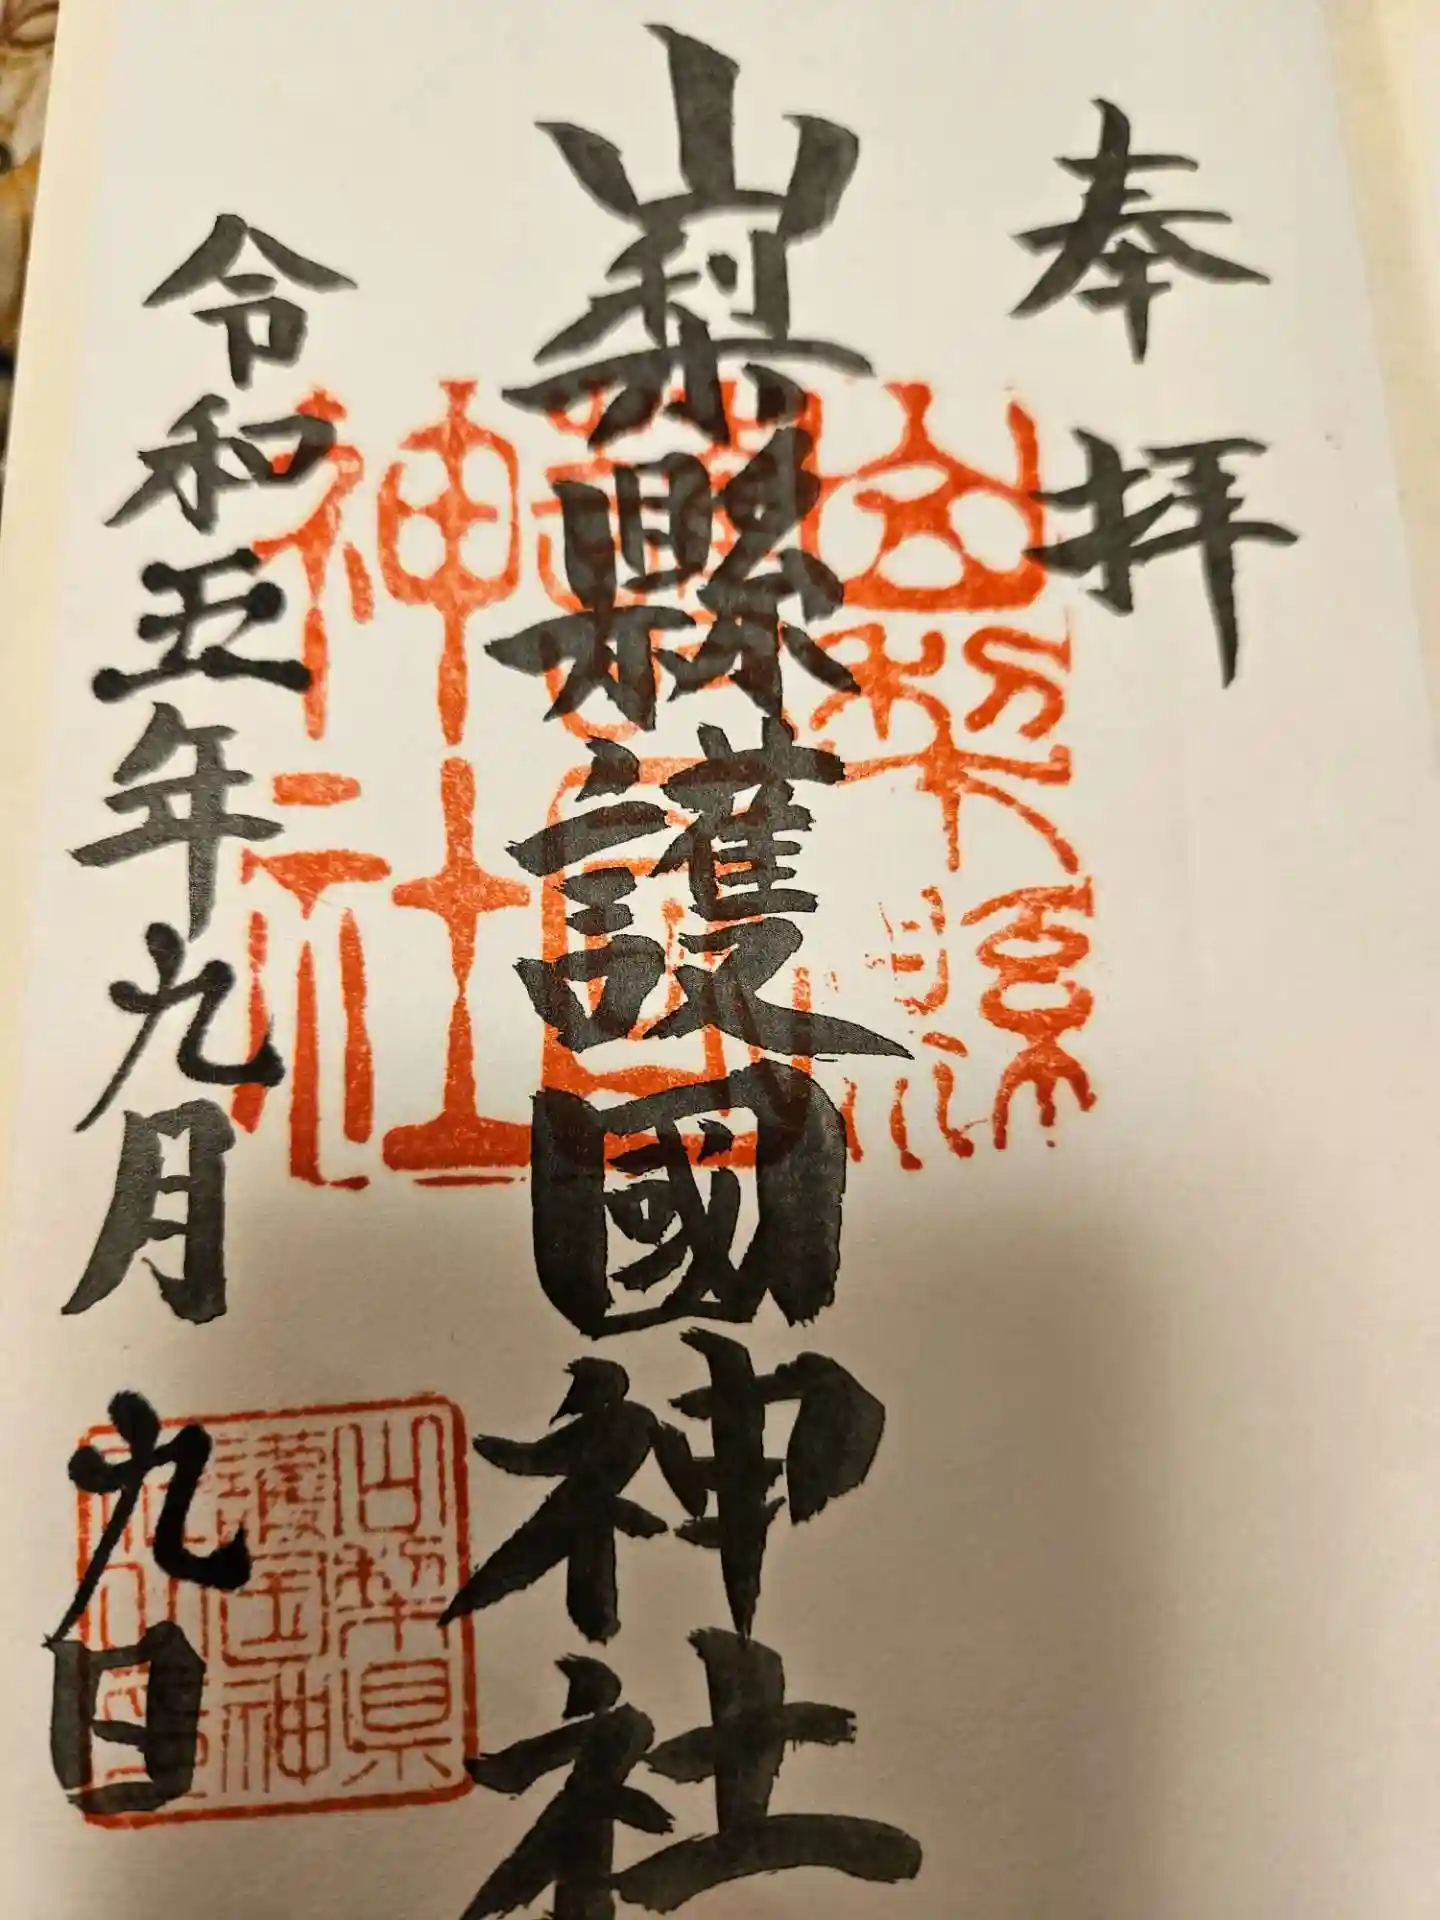 奉拝
山梨縣護國神社
令和五年九月九日
山梨縣
護国
神社
山梨県
護国神